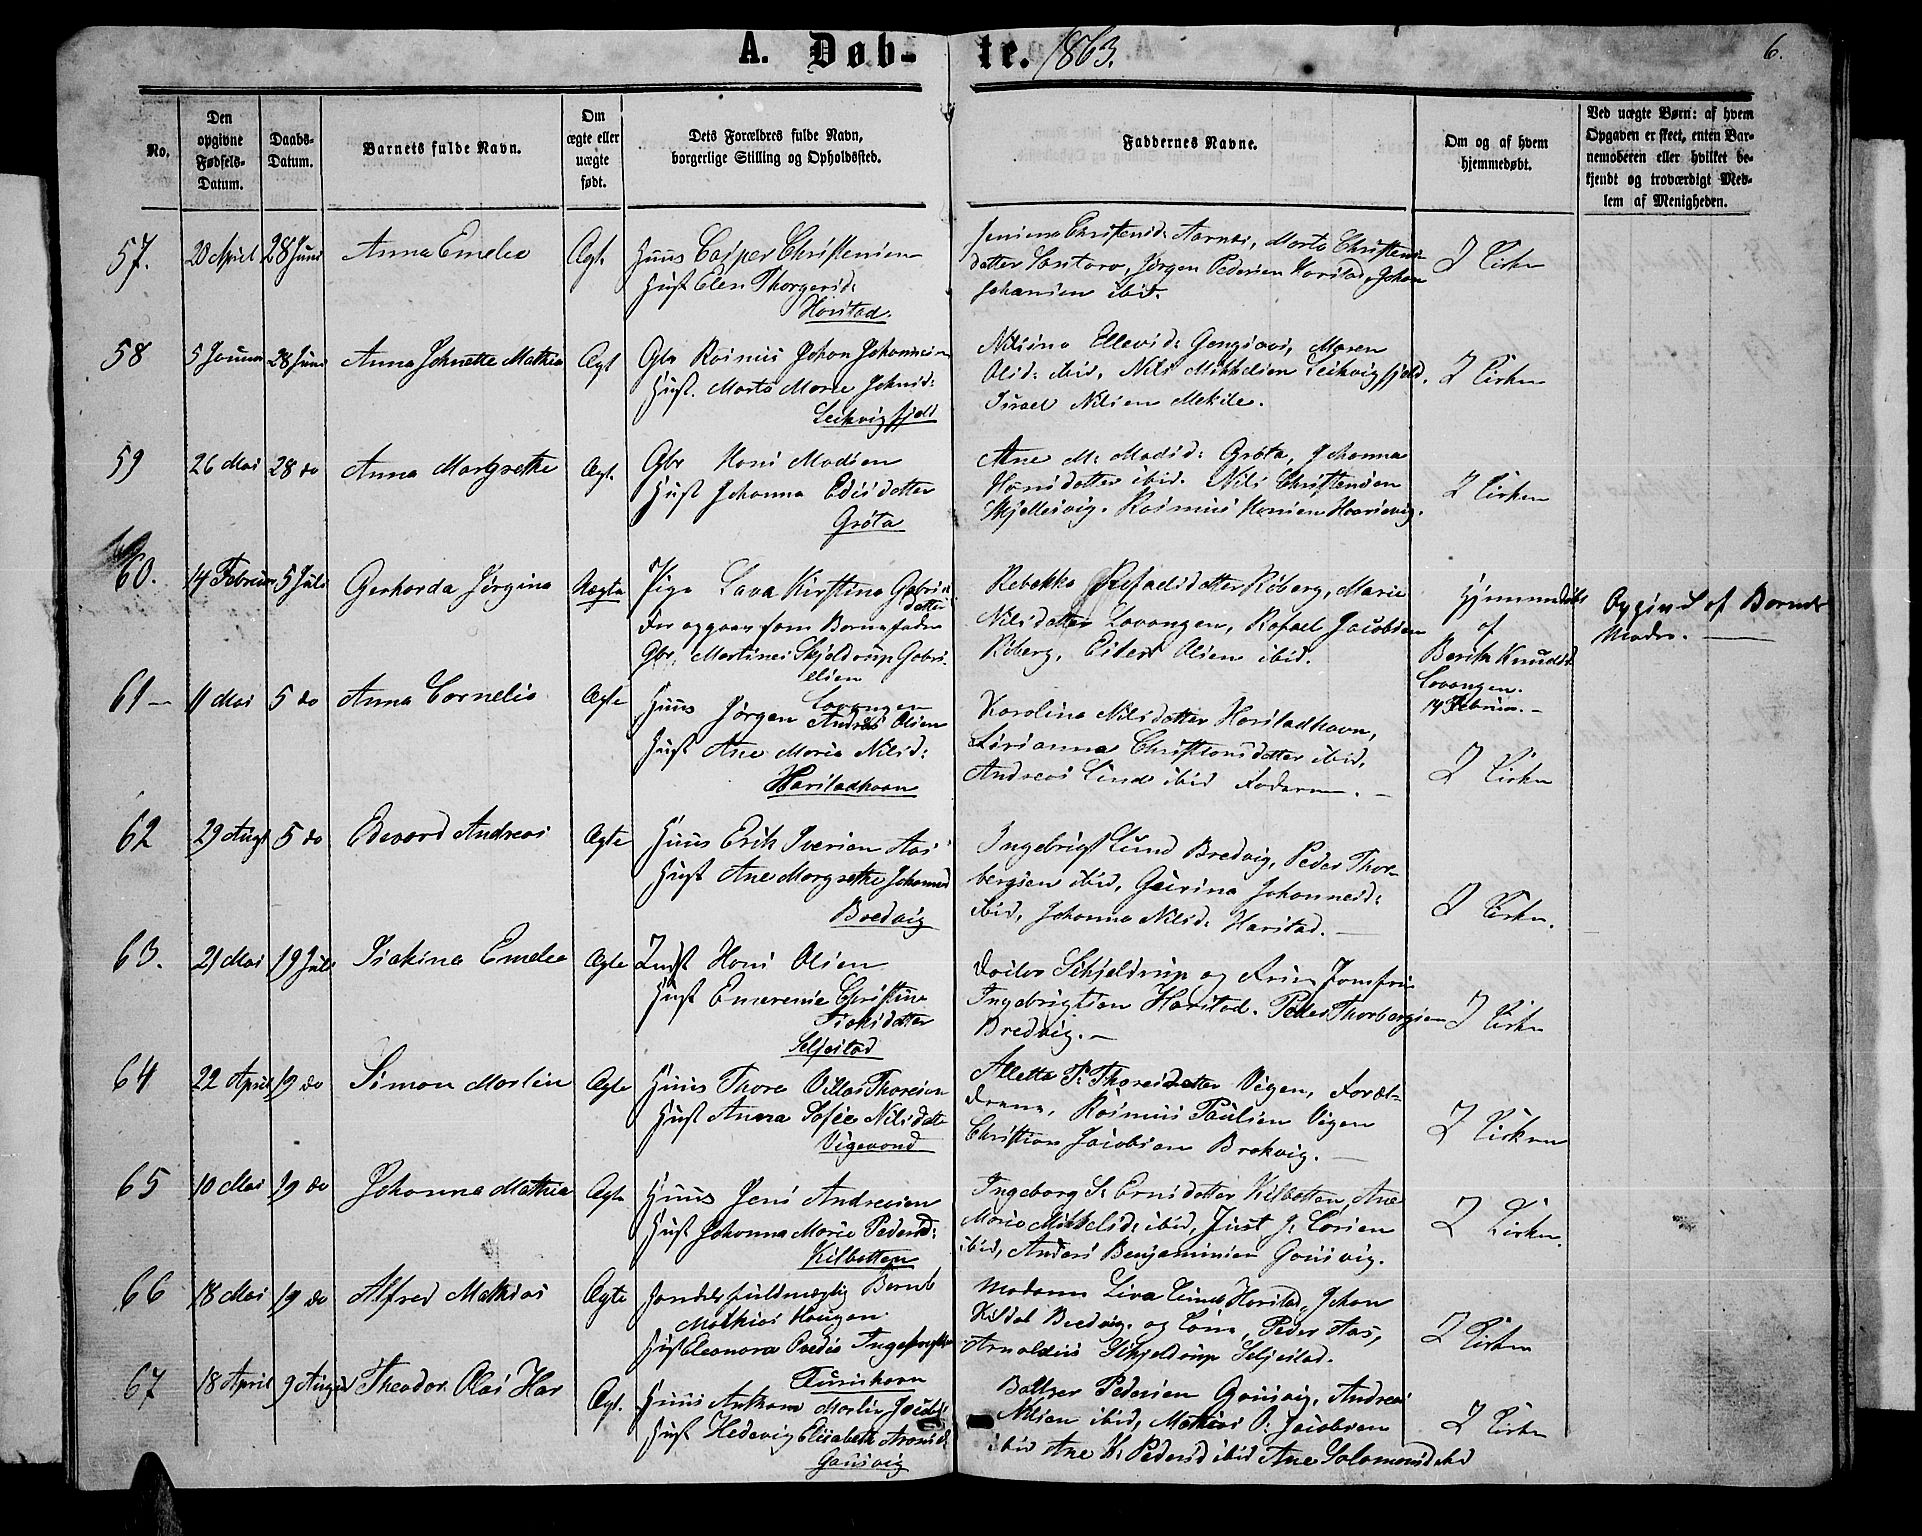 A. Døb-te. 1863.
6.
No.
Den opgivne Fødsels-Datum.
Daabs-Datum.
Barnets fulde Navn.
Om ægte eller uægte født.
Dets Forældres fulde Navn, borgerlige Stilling og Opholdssted.
Faddernes Navne.
Om og af hvem hjemmedøbt.
Ved uægte Børn: af hvem Opgaven er skeet, enten Barnemoderen eller hvilket bekjendt og troværdigt Medlem af Menigheden.
57. 20 April 28 Juni Anna Emelie Ægt. Huus Casper Christensen
Hust Elen Thorgersd:
Harstad.
Christensd: Aarnes, Marta Christens
datter Jørgen Pedersen Harstad, Johan
Johansen ibid.
I Kirken
58 28 Juni Anna Johnette Mathea Ægt Gbr Rasmus Johan Johannesen
Hust. Marta Marie Johnsd:
Leikvigfjeld
Nilsina Ellevsd: Maren
Olsd: ibid, Nils Mikkelsen Leikvigfjeld.
Israel Nilsen
I Kirken
59 26 Mai 28 do Anna Margrethe Ægt. Gbr Hans Madsen
Hust Johanna Edisdatter
Grøta
Ane M. Madsd: Grøta, Johanna
Hansdatter ibid. Nils Christensen
Skjellesvig. Rasmus Hansen
I Kirken
60. 14 Februar 5 Juli Gerharda Jørgina Uægte Pige Lava Kirstina Gabriels
datter
Der opgaar som Barnefader
Gbr. Martines Skjeldrup Gabri-
elsen
Lavangen
Rebekka Rafaelsdatter Røberg, Marie
Nilsdatter Lavangen, Rafael Jacobsen
Røberg, Olsen ibid.
Hjemmedøbt
af
Berith Knudsd.
Lavangen.
14 Februar.
Opgivet af Barnets
Moder.
61 11 Mai 5 do Anna Cornelia Ægte Huus Jørgen Andreas Olsen
Hust Ane Maria Nilsd:
Harstadhavn
Karolina Nilsdatter Harstadhavn,
Christensdatter ibid,
Andreas Lind ibid Faderen.
I Kirken
62 29 Augt 5 do Edvard Andreas Ægte Huus Erik Iversen Aas
Hust Ane Margrethe Johannesd
Bredvig
Ingebrigt Lund Bredvig, Peder Thor-
bergsen ibid, Johannesd:
ibid, Johanna Nilsd: Harstad.
I Kirken.
63. 21 Mai 19 Juli Isakina Emelie Ægte Indst Hans Olsen
Hust Emerense Christine
Isaksdatter
Seljestad
Skjeldrup og Jomfru
Ingebrigtsen Harstad. Peder Thorbergsen
Bredvig.
I Kirken
64 22 April 19 do Simon Martin Ægte Huus Thore Thoresen
Hust Anna Sofie Nilsdatt
Vigevand
Aletta P. Thoresdatter Vigen, Foræl-
drene, Rasmus Paulsen Vigen
Christian Jacobsen
I Kirken
65 10 Mai 19 do Johanna Mathea Ægte Huus Jens Andreasen
Hust Johanna Marie Pedersd:
Kilbotten
Ingeborg S. Ernsdatter Kilbotten, Ane
Marie Mikkelsd: ibid, Just J. Larsen
ibid, Anders Benjaminsen Gausvig.
I Kirken.
66 18 Mai 19 do Alfred Mathias Ægte Handelsfuldmægtig Bernt
Mathias Haugen
Hust Eleonora
Madam Liva Lund Harstad, Johan
Kildal Bredvig. og Peder Aas,
Arnoldus Skjeldrup Seljestad.
I Kirken
67 18 April 9 August Theodor Olai Ægt. Huus Anthon Martin
Hust Hedevig Elisabeth
Gausvig
Baltser Pedersen Gausvig, Andreas
Nilsen ibid, Mathias P. Jacobsen
ibid Ane K. Pedersd ibid Ane Salomonsd ibd
I Kirken